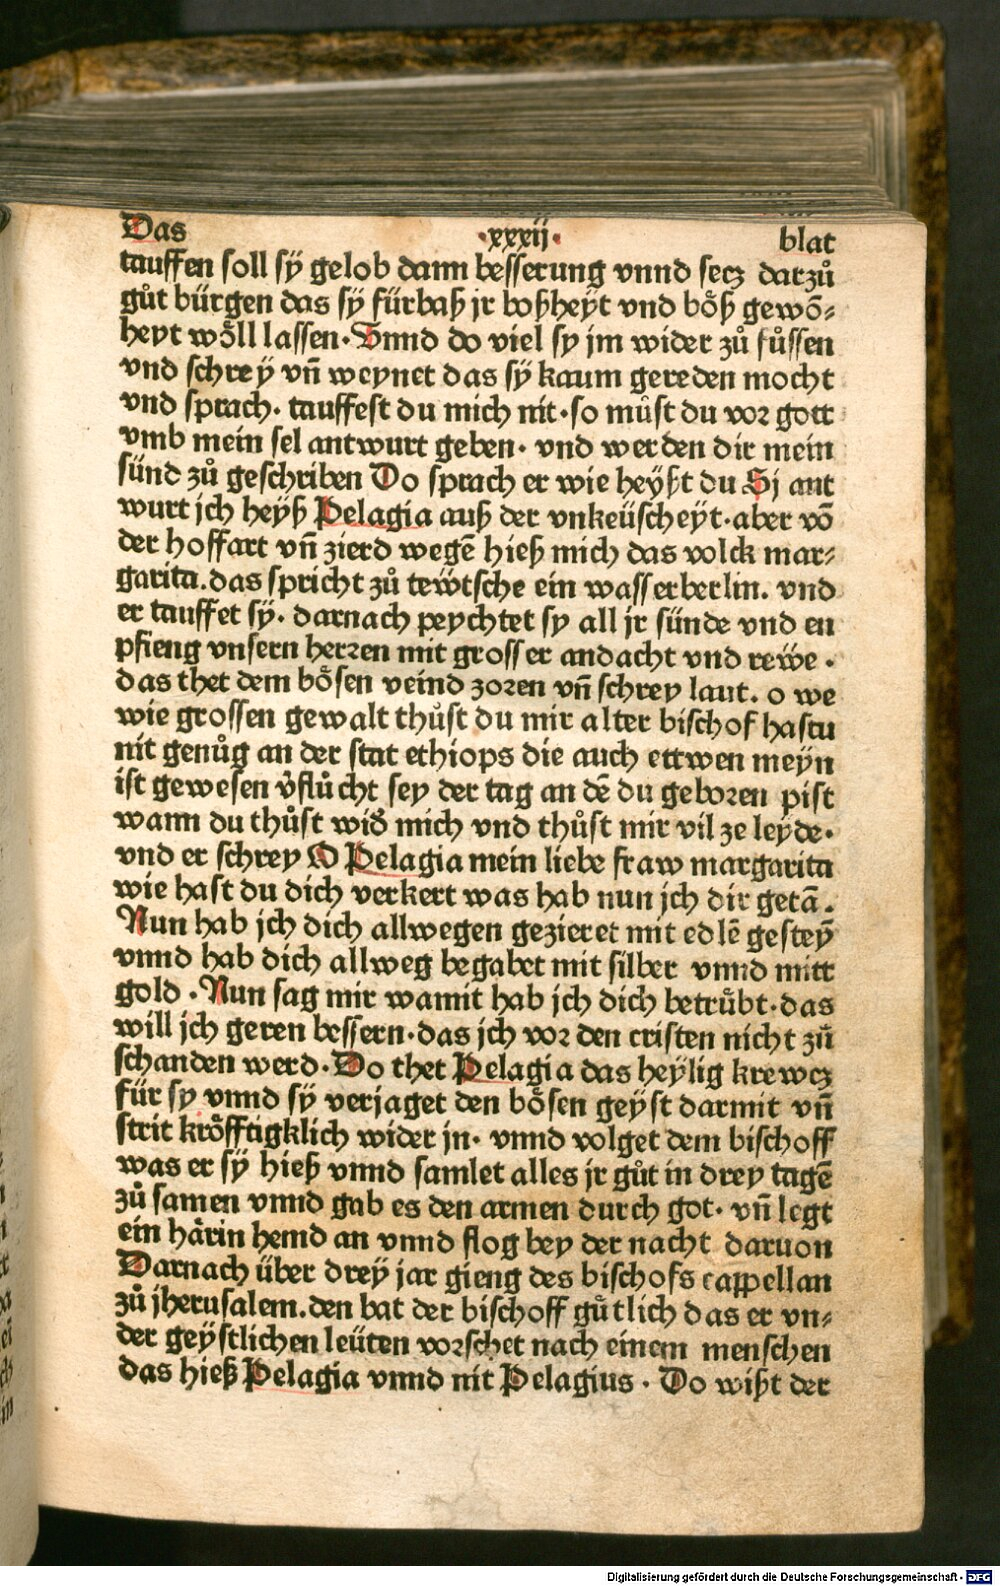 Das ·xxxij· blat
tauffen soll sÿ gelob dann besserung vnnd secz darzů
gůt bürgen das sÿ fürbaß jr boßheÿt vnd bo͏̈ß gewō⸗
heyt wo͏̈ll lassen· Vnnd do viel sy jm wider zů fůssen
vnd schrey vn̄ weynet das sÿ kaum gereden mocht
vnd sprach· tauffest du mich nit·so můst du vor gott
vmb mein sel antwurt geben· vnd werden dir mein
sünd zů geschriben Do sprach er wie heÿßt du Sj ant
wurt jch heÿß Pelagia auß der vnkeüscheyt·aber vō
der hoffart vn̄ zierd wegē hieß mich das volck mar⸗
garita.das spricht zů tewtsche ein wasserberlin. vnd
er tauffet sÿ· darnach peychtet sy all jr sünde vnd en
pfieng vnsern herren mit grosser andacht vnd rewe ·
das thet dem bo͏̈sen veind zoren vn̄ schrey laut. o we
wie grossen gewalt thůst du mir alter bischof hastu
nit genůg an der stat ethiops die auch ettwen meÿn
ist gewesen v̉flůcht sey der tag an dē du geboren pist
wann du thůst wid̉ mich vnd thůst mir vil ze leyde·
vnd er schrey O Pelagia mein liebe fraw margarita
wie hast du dich verkert was hab nun jch dir getā.
Nun hab jch dich allwegen gezieret mit edlē gesteÿ
vnnd hab dich allweg begabet mit silber vnnd mitt
gold · Nun sag mir wamit hab jch dich betrübt·das
will jch geren bessern·das jch vor den cristen nicht zů
schanden werd· Do thet Pelagia das heÿlig krewcz
für sy vnnd sÿ verjaget den bo͏̈sen geÿst darmit vn̄
strit kro͏̈fftigklich wider jn· vnnd volget dem bischoff
was er sÿ hieß vnnd samlet alles jr gůt in drey tagē
zů samen vnnd gab es den armen durch got· vn̄ legt
ein härin hemd an vnnd flog bey der nacht daruon
Darnach über dreÿ jar gieng des bischofs cappellan
zů jherusalem.den bat der bischoff gütlich das er vn⸗
der geÿstlichen leüten vorschet nach einem menschen
das hieß Pelagia vnnd nit Pelagius · Do wißt der
Digitalisierung gefördert durch die Deutsche Forschungsgemeinschaft · DFG